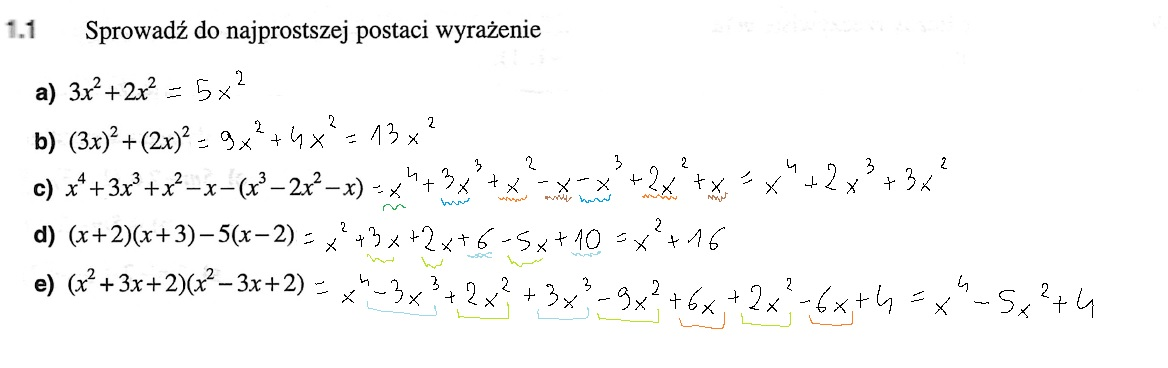 1.1 Sprowadź do najprostszej postaci wyrażenie
a) 3x² + 2x² = 5x²
b) (3x)² + (2x)² = 9x² + 4x² = 13x²
c) x⁴ + 3x³ + x² − x − (x³ − 2x² − x) = x⁴ + 3x³ + x² − x − x³ + 2x² + x = x⁴ + 2x³ + 3x²
d) (x + 2)(x + 3) − 5(x − 2) = x² + 3x + 2x + 6 − 5x + 10 = x² + 16
e) (x² + 3x + 2)(x² − 3x + 2) = x⁴ − 3x³ + 2x² + 3x³ − 9x² + 6x + 2x² − 6x + 4 = x⁴ − 5x² + 4